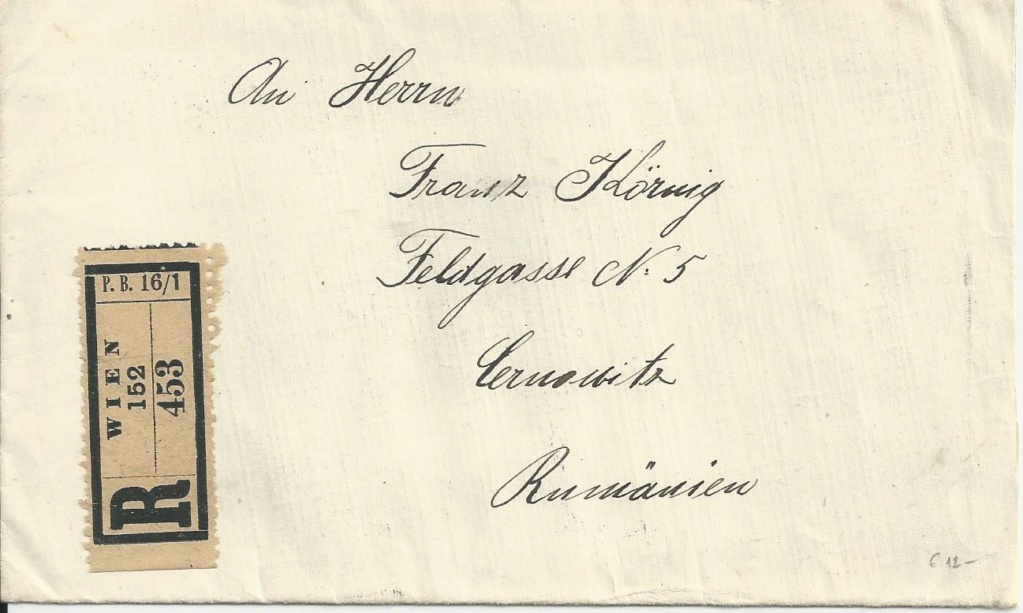 An Herrn
Franz Körnig
Feldgasse N. 5
Cernowitz
Rumänien
P. B. 16/1
WIEN
152
453
R